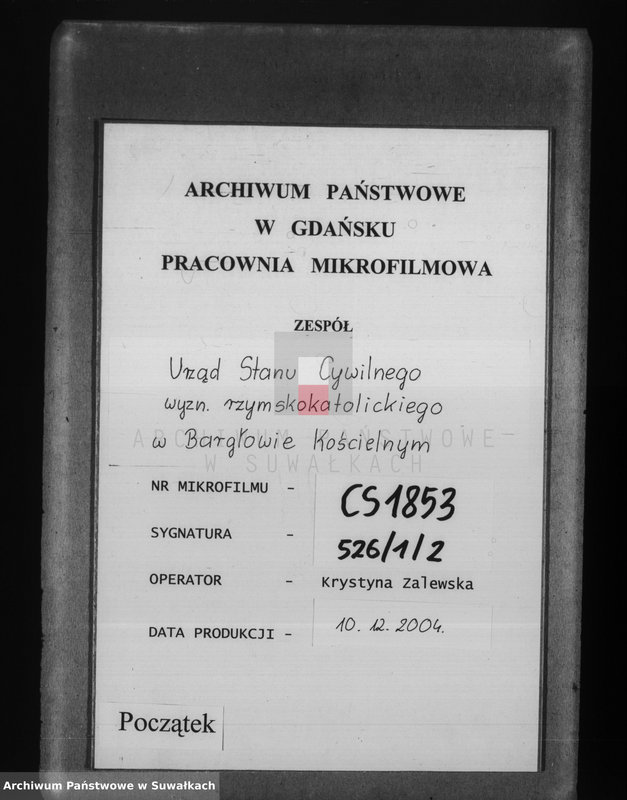 ARCHIWUM PAŃSTWOWE
W GDAŃSKU
PRACOWNIA MIKROFILMOWA
ZESPÓŁ
Urząd Stanu Cywilnego
wyzn. rzymskokatolickiego
ARCHIWUM PAŃSTWOWE
w Bargłowie Kościelnym
W SUWAŁKACH
NR MIKROFILMU - CS1853
SYGNATURA - 526/1/2
OPERATOR - Krystyna Zalewska
DATA PRODUKCJI - 10.12.2004.
Początek
Archiwum Państwowe w Suwałkach